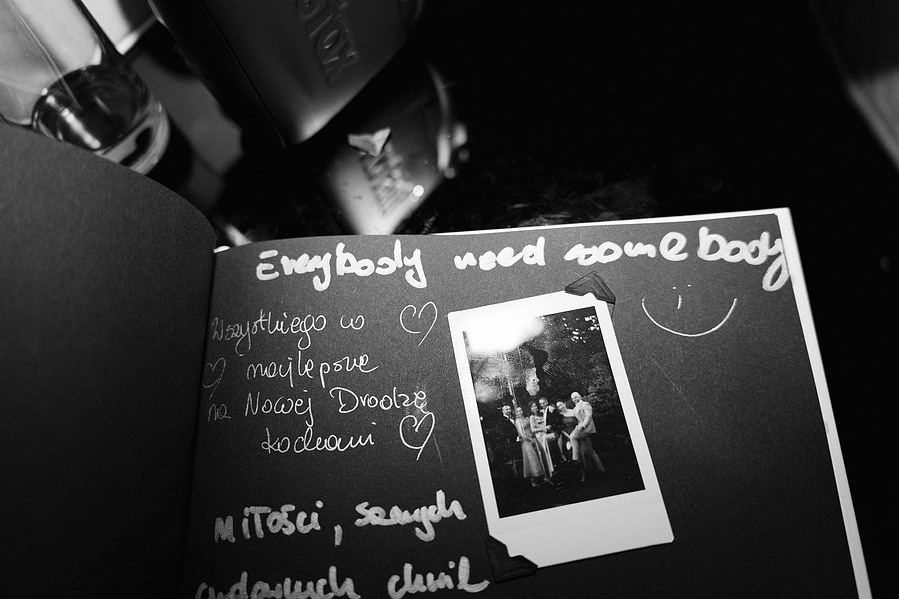 Everybody need somebody
Wszystkiego co
najlepsze
na Nowej Drodze
kochani
Miłości, samych
cudownych chwil